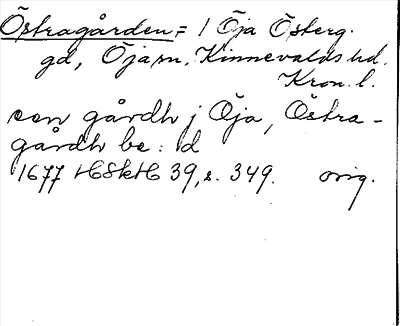 Östragården, = 1 Öja Österg.
gd, Öja sn, Kinnevalds hd.
Kron. l.
een gårdh j Öja, Östra-
gårdh be:d
1677 HSkH 39, s. 349. orig.